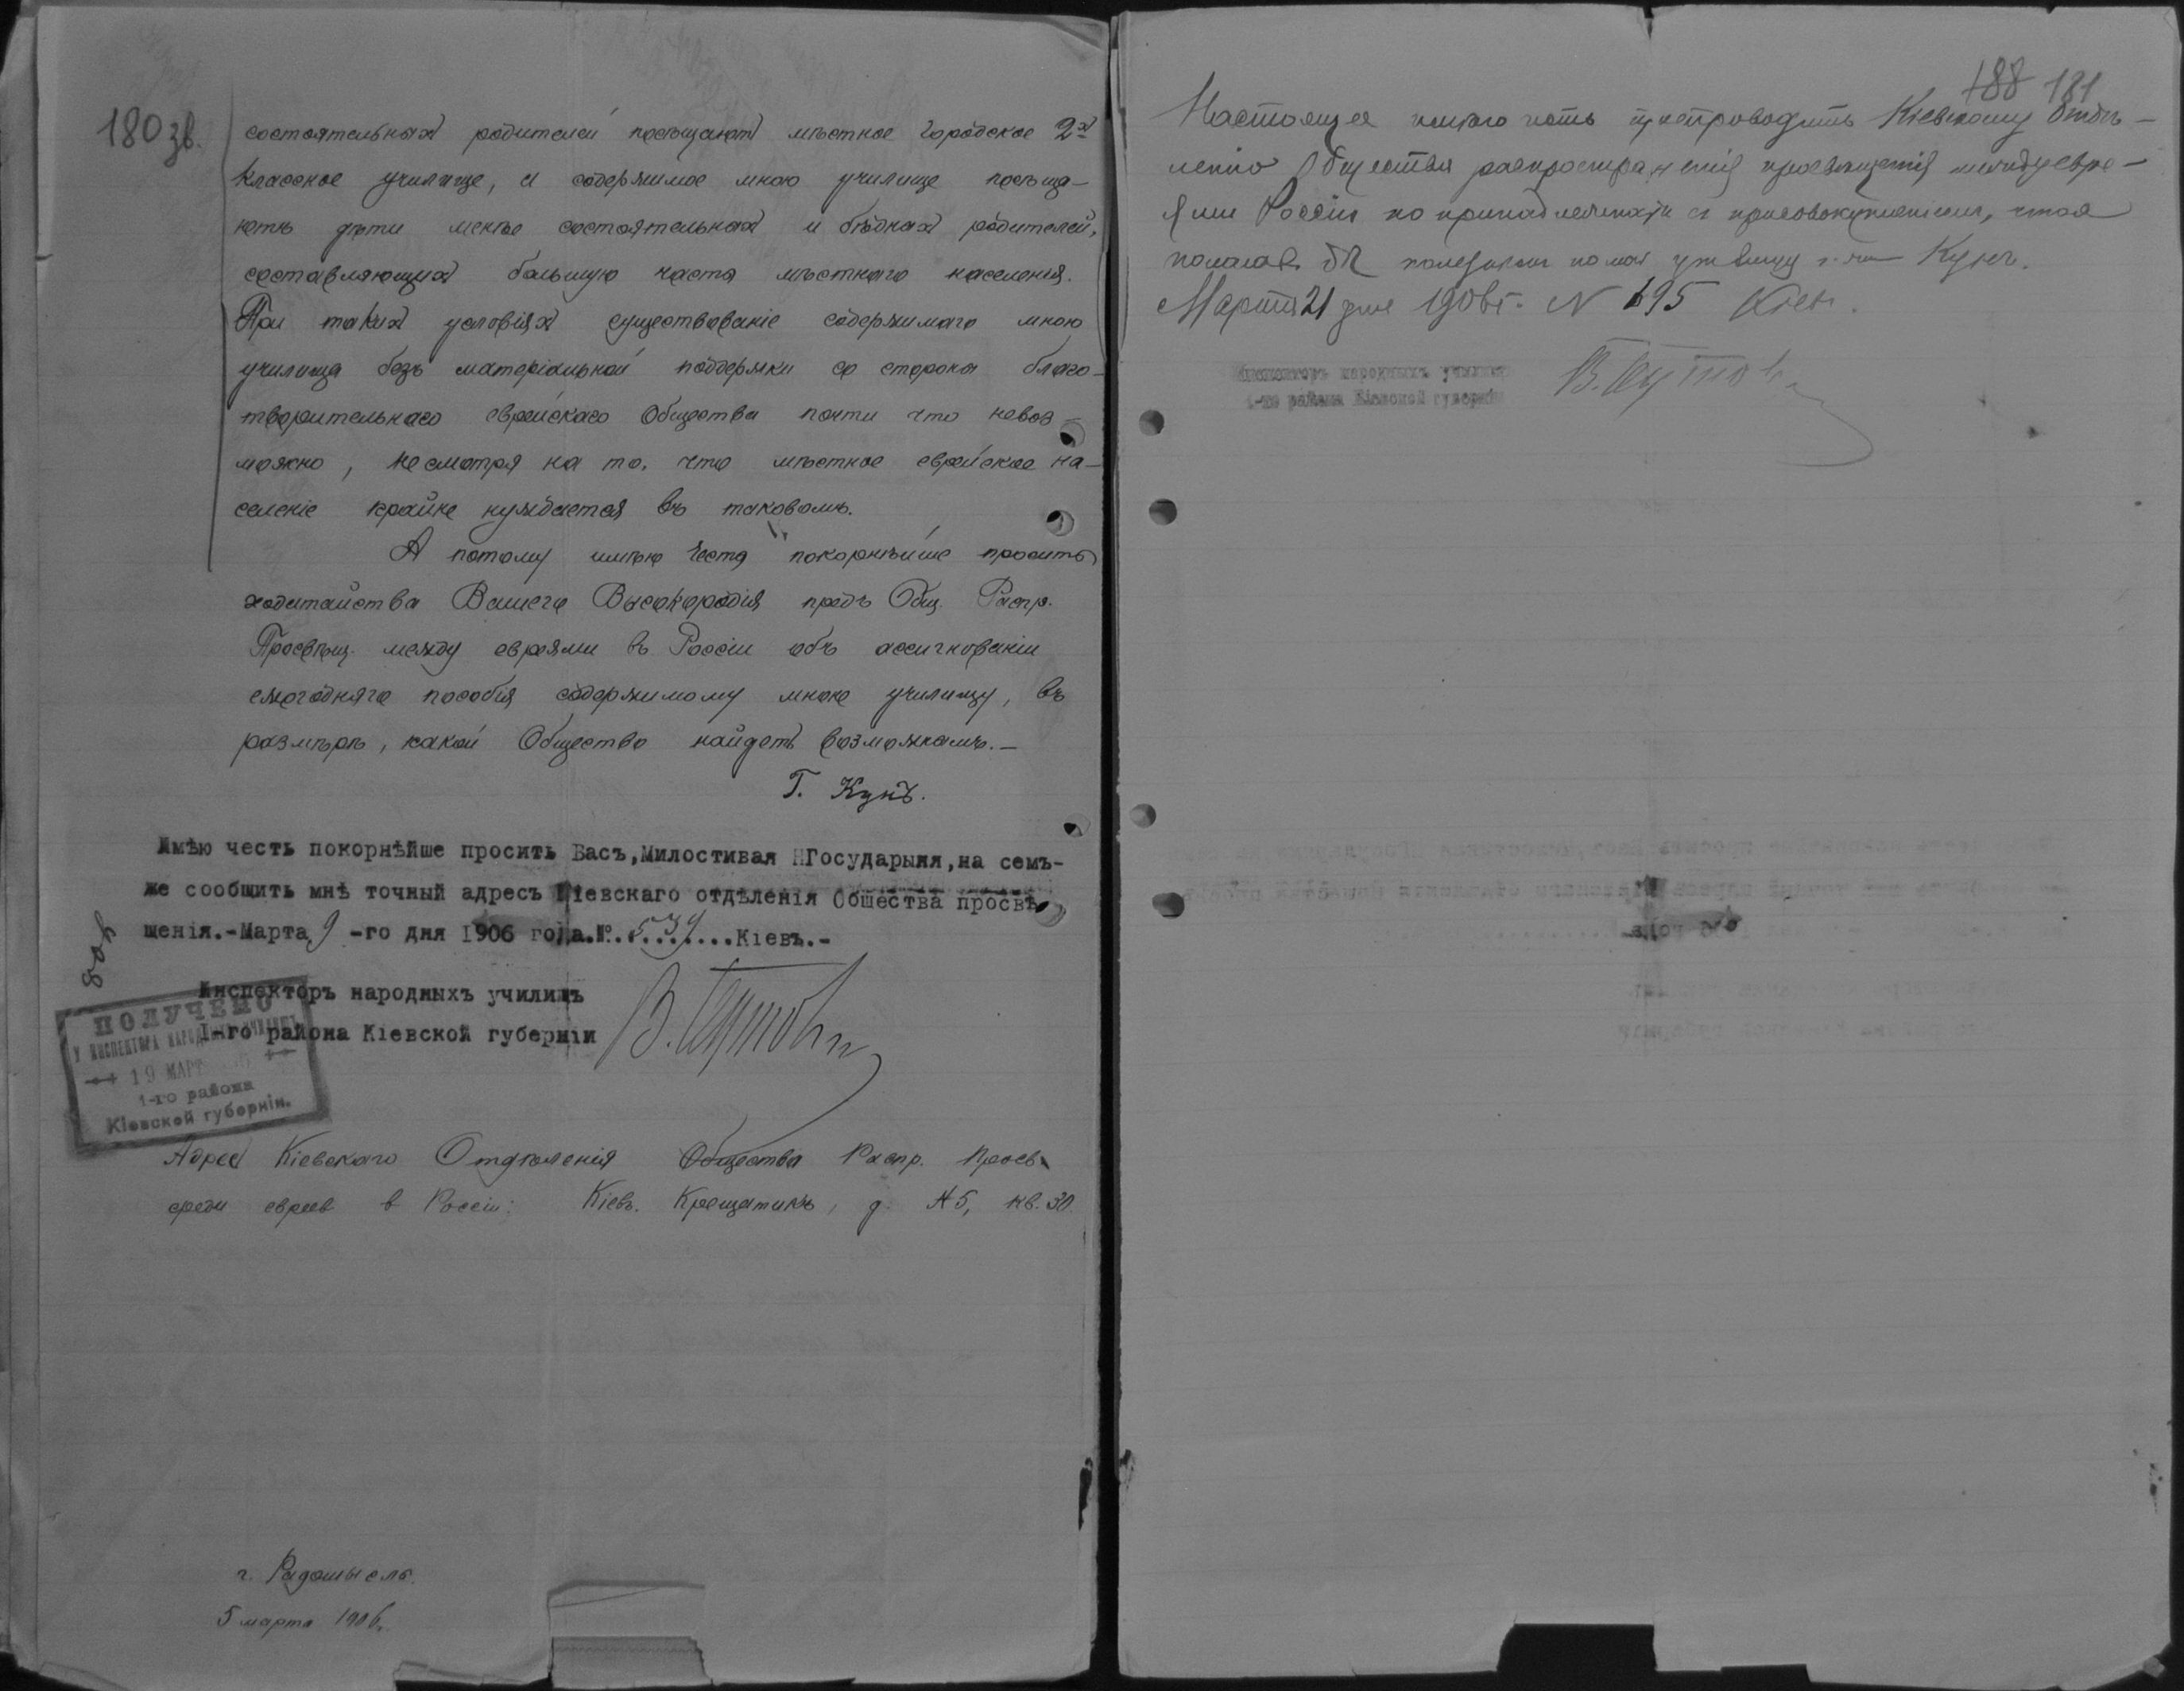 180 зв.
состоятельныхъ родителей посѣщаютъ мѣстное городское 2-х
классное училище, и содержимое мною училище посѣща-
ютъ дѣти менѣе состоятельныхъ и бѣдныхъ родителей,
составляющихъ большую часть мѣстнаго населенія.
При такихъ условіяхъ существованіе содержимаго мною
училища безъ матеріальной поддержки со стороны благо-
творительнаго еврейскаго Общества почти что невоз-
можно, несмотря на то, что мѣстное еврейское на-
селеніе крайне нуждается въ таковомъ.
А потому имѣю честь покорнѣйше просить
ходатайства Вашего Высокородія предъ Общ. Распр.
Просвѣщ. между евреями въ Россіи объ ассигнованіи
ежегоднаго пособія содержимому мною училищу, въ
размѣрѣ, какой Общество найдетъ возможнымъ.-
Г. Кунъ.
Имѣю честь покорнѣйше просить Васъ, Милостивая Государыня, на семъ-
же сообщить мнѣ точный адресъ Кіевскаго отдѣленія Общества просвѣ
щенія.-Марта 9 -го дня 1906 года.№..539....Кіевъ.-
808
Инспекторъ народныхъ училищъ
1-го района Кіевской губерніи
ПОЛУЧЕНО
У ИНСПЕКТОРА НАРОДНЫХЪ УЧИЛИЩЪ
19 МАР
1-го района
Кіевской губерніи.
Адресъ Кіевскаго Отдѣленія Общества Распр. Просв.
среди евреев в Россіи: Кіевъ. Крещатикъ, д. № 5, кв. 30.
г. Радомысль.
5 марта 1906.
188 181
Настоящее имѣю честь препроводить Кіевскому Отдѣ-
ленію Общества распространенія просвѣщенія между евре-
ями Россіи по принадлежности съ присовокупленіемъ, что я
полагалъ бы полезнымъ училищу Кунъ.
Марта 21 дня 1906 г. N 695 Кіевъ.
Инспекторъ народныхъ училищъ
1-го района Кіевской губерніи